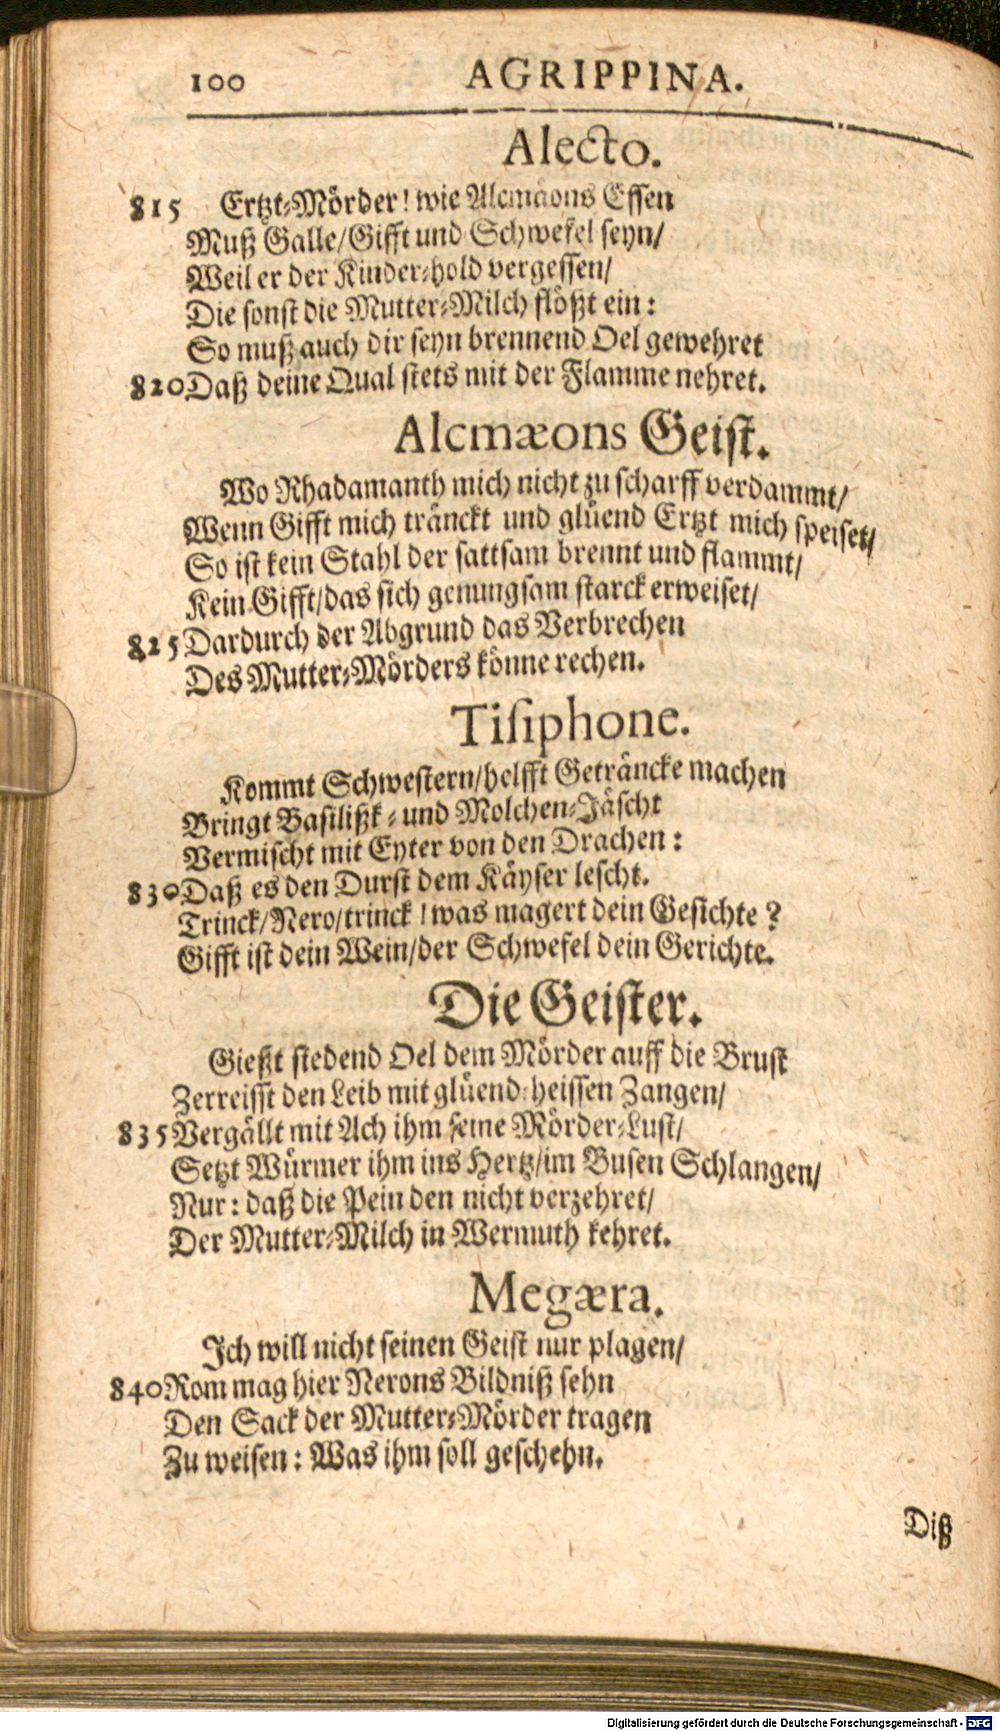 100 AGRIPPINA.
Alecto.
815 Ertzt-Mörder! wie Alcmäons Essen
Muß Galle/Gifft und Schwefel seyn/
Weil er der Kinder-hold vergessen/
Die sonst die Mutter-Milch flößt ein:
So muß auch dir seyn brennend Oel gewehret
820 Daß deine Qual stets mit der Flamme nehret.
Alcmæons Geist.
Wo Rhadamanth mich nicht zu scharff verdammt/
Wenn Gifft mich tränckt und glüend Ertzt mich speiset/
So ist kein Stahl der sattsam brennt und flammt/
Kein Gifft/das sich genungsam starck erweiset/
825 Dardurch der Abgrund das Verbrechen
Des Mutter-Mörders könne rechen.
Tisiphone.
Kommt Schwestern/helfft Geträncke machen
Bringt Basilißk- und Molchen-Jäscht
Vermischt mit Eyter von den Drachen:
830 Daß es den Durst dem Käyser lescht.
Trinck/Nero/trinck! was magert dein Gesichte?
Gifft ist dein Wein/der Schwefel dein Gerichte.
Die Geister.
Gießt siedend Oel dem Mörder auff die Brust
Zerreisst den Leib mit glüend-heissen Zangen/
835 Vergällt mit Ach ihm seine Mörder-Lust/
Setzt Würmer ihm ins Hertz/im Busen Schlangen/
Nur: daß die Pein den nicht verzehret/
Der Mutter-Milch in Wermuth kehret.
Megæra.
Ich will nicht seinen Geist nur plagen/
840 Rom mag hier Nerons Bildniß sehn
Den Sack der Mutter-Mörder tragen
Zu weisen: Was ihm soll geschehn.
Diß
Digitalisierung gefördert durch die Deutsche Forschungsgemeinschaft - DFG